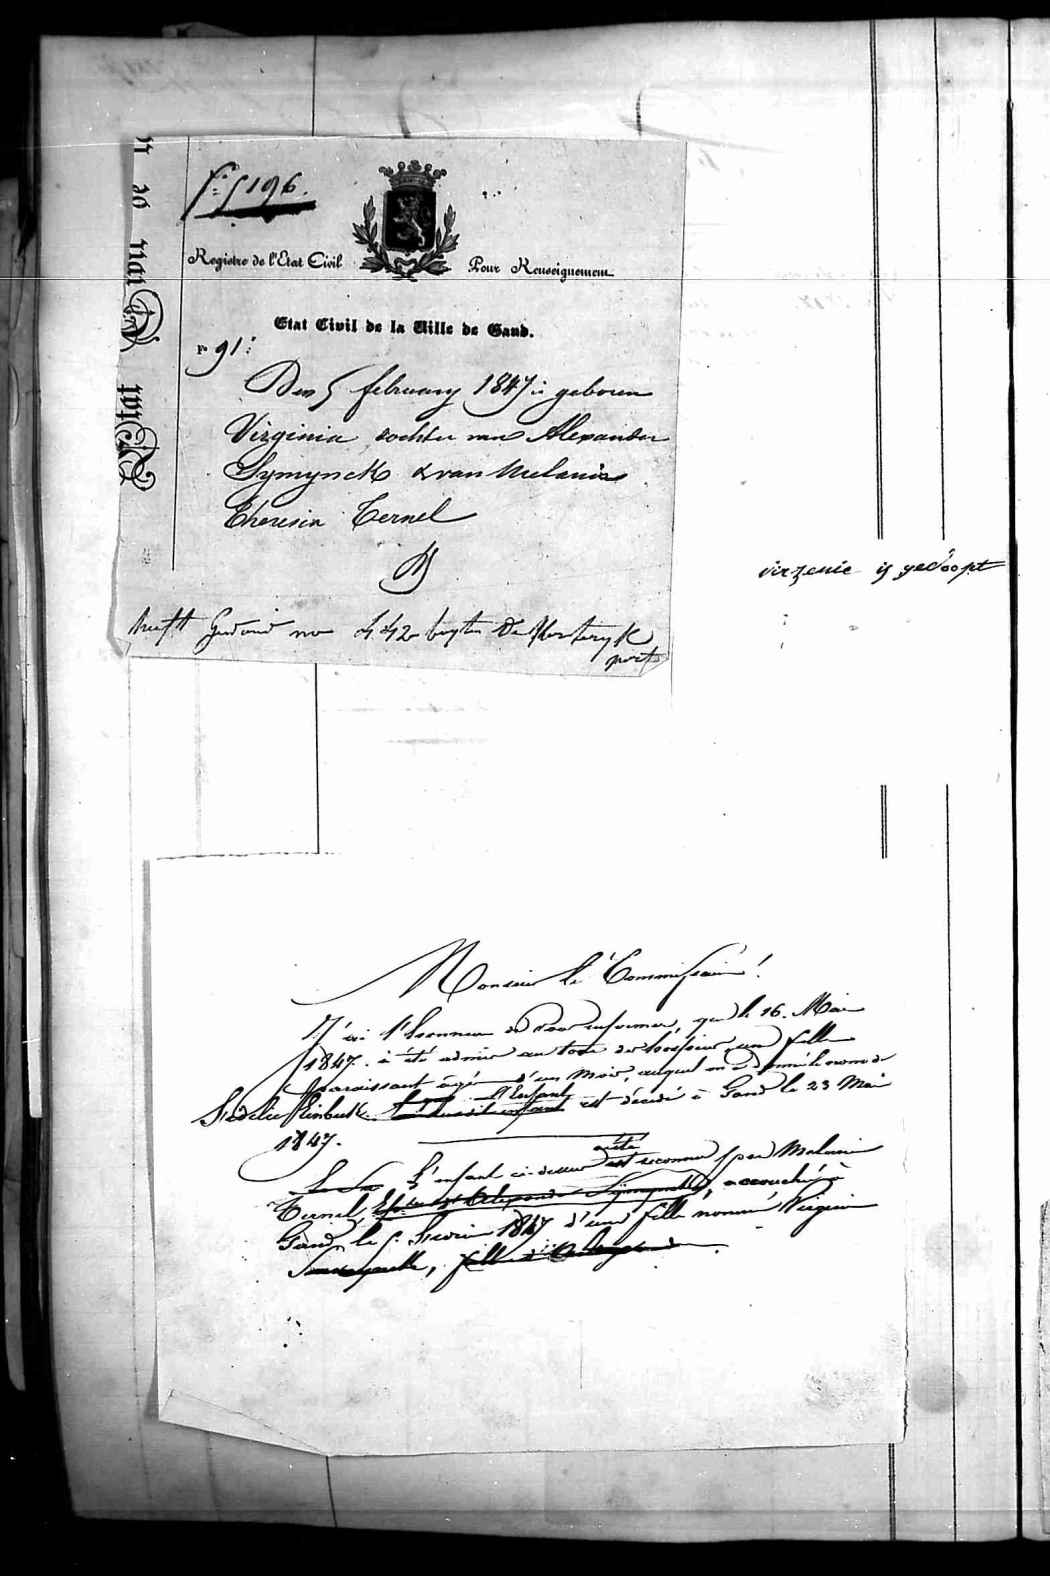 196.
Registre de l'Etat Civil
Pour Renseignement
Etat Civil de la Ville de Gand.
F° 91
Den 5 february 1847 is geboren
Virginia dochter van Alexander
Symynck & van Melania
Theresia Ternel
no 442 buyten De
port
virzenie is gedoopt
Monsieur le Commissaire!
J'ai l'honneur de vous informer, que le 16. Mai
1847. à été admis au tour de hospice, une fille
paraissant âgée d'un mois, auquel on a donné le nom de
l'Enfant est décédé à Gand le 23 Mai
1847.
a été
L'enfant ci-dessus est reconnu par Melanie
Ternel, accouchée à
Gand, le 5 1847 d'une fille nommé Virginie